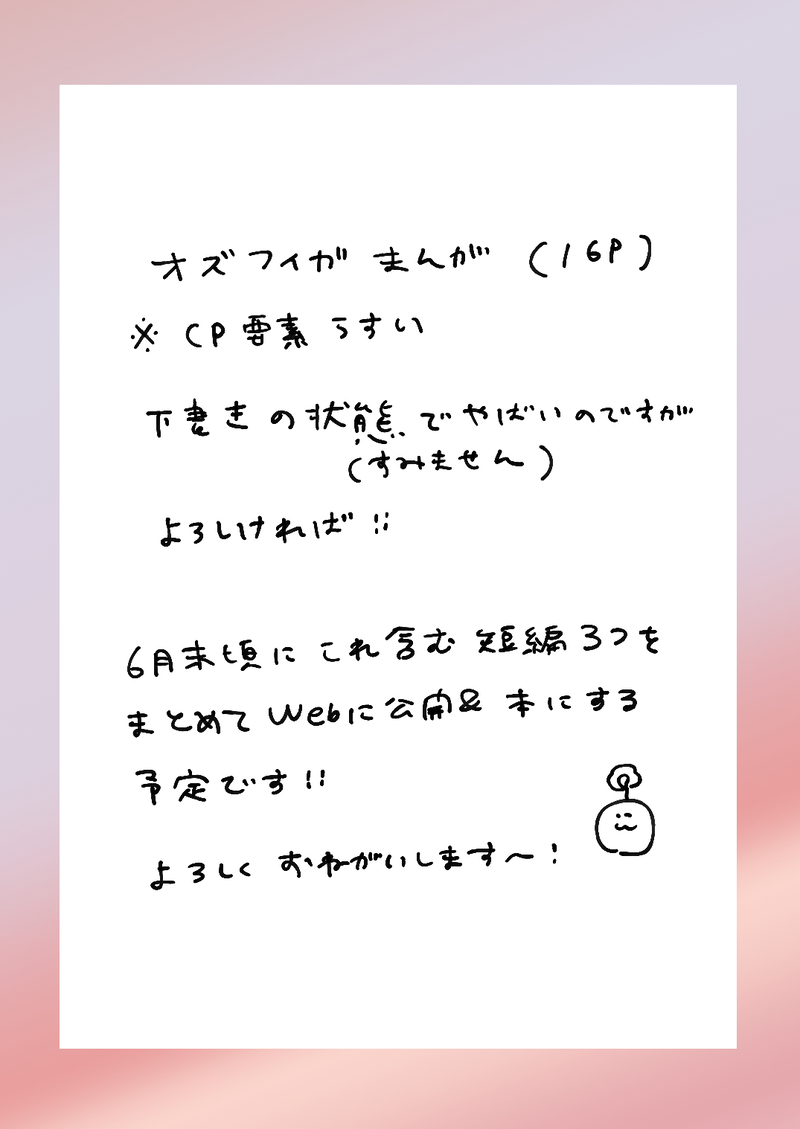 オズフィガ まんが (16P)
※ CP要素 うすい
下書きの状態でやばいのですが
(すみません)
よろしければ!!
6月末頃に これ含む 短編3つを
まとめて Webに公開& 本にする
予定です!!
よろしく おねがいします〜!